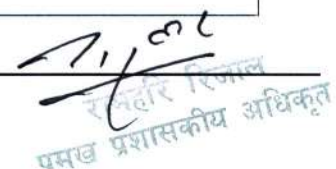 रत्नहरि रिजाल
प्रमुख प्रशासकीय अधिकृत